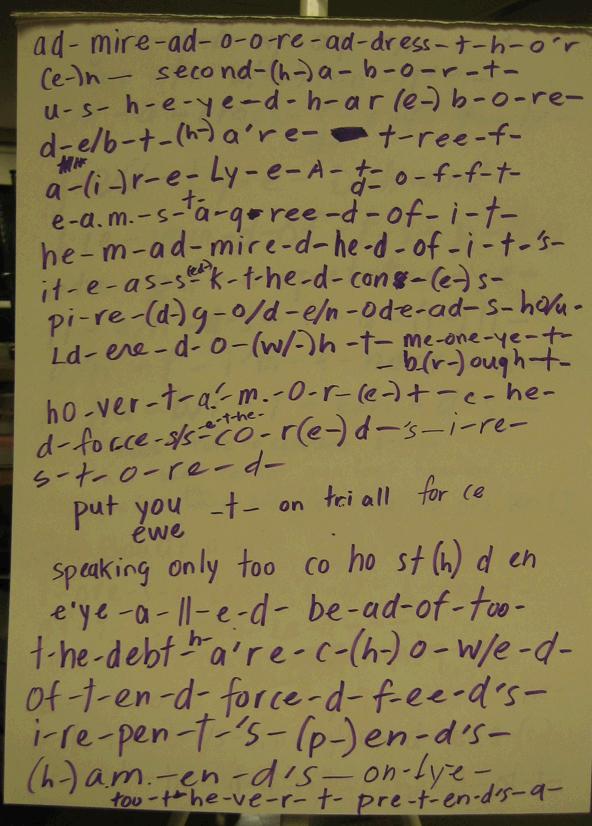 ad- mire-ad- o-o-re-ad-dress-t-h-o'r
(e-)n— second-(h-)a-b-o-r-t-
u-s-h-e-ye-d-h-ar(e-)b-o-re-
d-e/b-t-(h-)a're- t-ree-f-
a-(i-)r-e-Ly-e-A- t- d- o-f-f-t-
e-a.m.-s-t-a-q-ree-d-of-i-t-
he-m-ad-mire-d-he-d-of-i-t-'s-
it-e-as-s(ed)-k-t-he-d-cons-(e-)s-
pi-re-(d-)g-o/d-e/n-ode-ad-s-ho/u-
Ld-ere-d-o-(w/-)h-t- me-one-ye-t-
- b(r-)ough-t-
ho-ver-t-a'-m.-o-r-(e-)t-e-he-
d-force-s/s-e-t-he-co-r(e-)d-'s-i-re-
s-t-o-re-d-
put you -t- on tri all for ce
ewe
speaking only too co ho st(h) d en
e'ye-a-ll-e-d- be-ad-of-too-
t-he-debt-h-a're-c-(h-)o-w/e-d-
of-t-en-d-force-d-f-ee-d's-
i-re-pen-t-'s-(p-)en-d's-
(h-)a.m.-en-d's—on-ly-e-
too-t-he-ve-r-t- pre-t-en-d's-a-